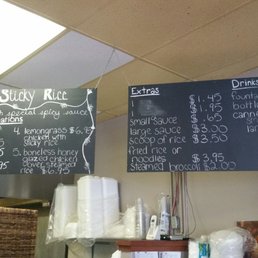 Sticky Rice
special spicy sauce
4. lemongrass $6.95
chicken with
sticky rice
5. boneless honey
glazed chicken
over steamed
rice $6.95
Extras
1
$1.45
1
$.95
small sauce $.65
large sauce $3.00
scoop of rice $3.50
fried rice or
noodles $3.95
steamed broccoli $2.00
Drinks